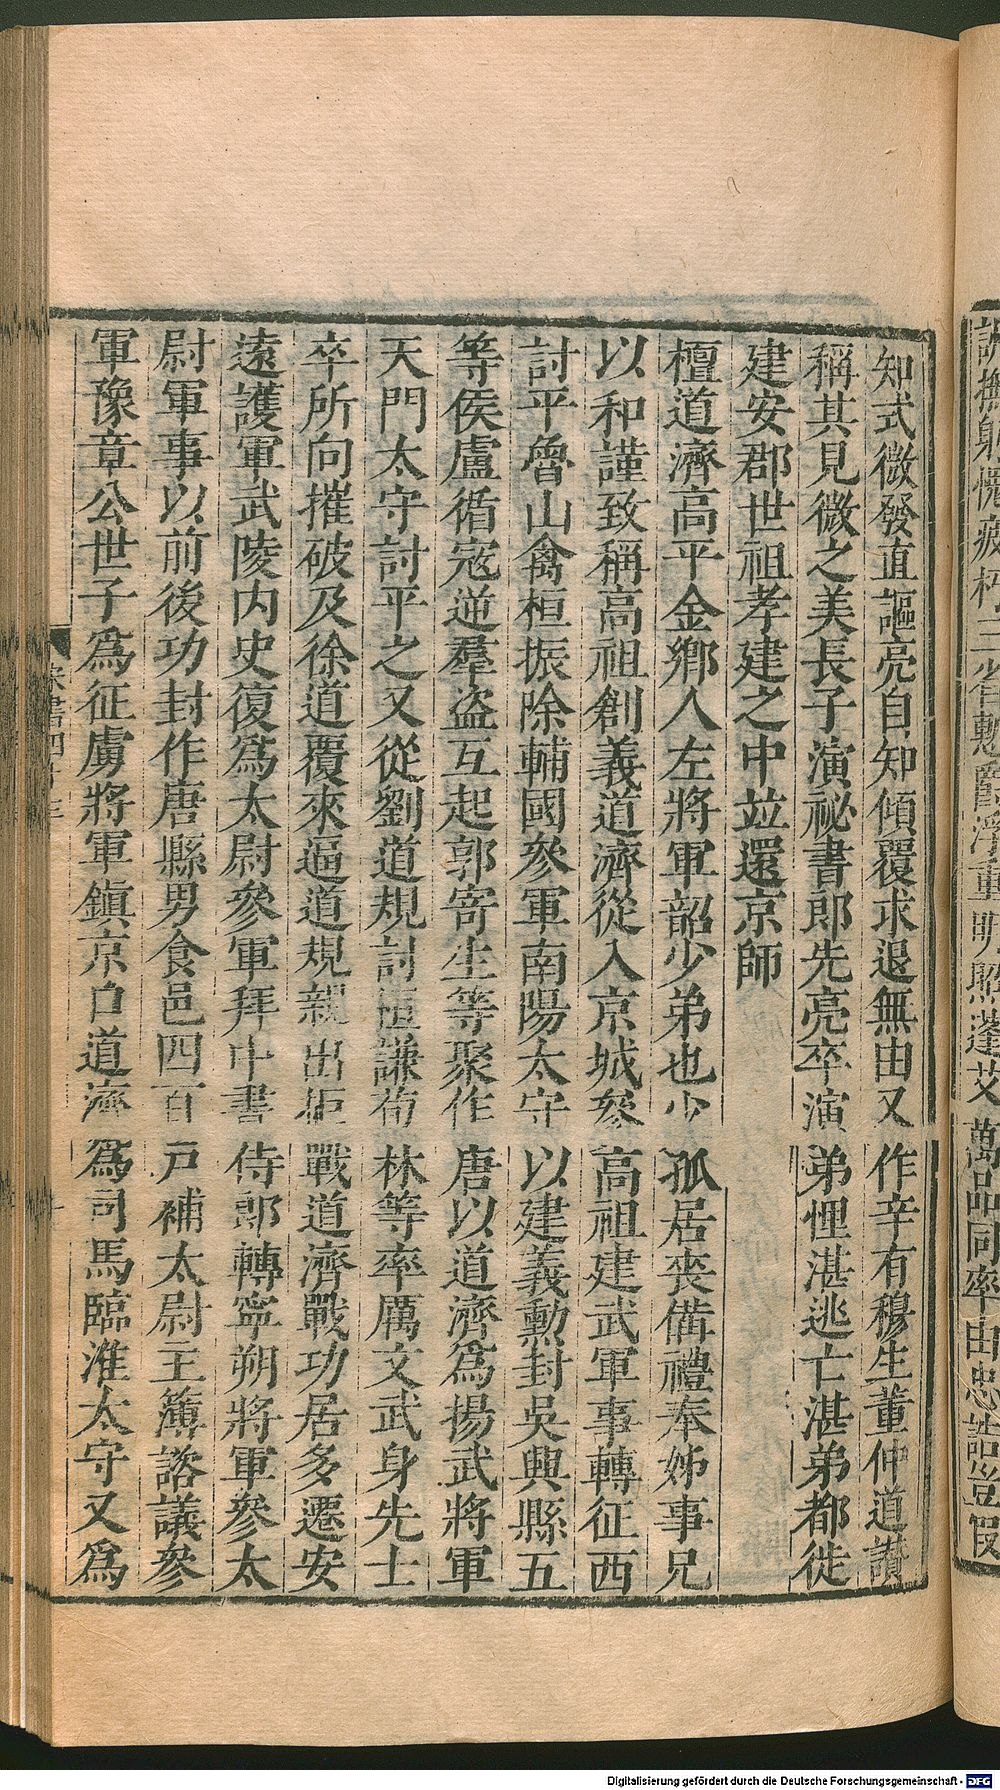 知式微發直謳亮自知傾覆求退無由又作辛有穆生董仲道讚
稱其見微之美長子演祕書郎先亮卒演弟悝湛逃亡湛弟都徙
建安郡世祖孝建之中竝還京師
檀道濟高平金鄉人左將軍韶少弟也少孤居喪備禮奉姊事兄
以和謹致稱高祖創義道濟從入京城參高祖建武軍事轉征西
討平魯山禽桓振除輔國參軍南陽太守以建義勳封吳興縣五
等侯盧循寇逆羣盜互起郭寄生等聚作唐以道濟爲揚武將軍
天門太守討平之又從劉道規討桓謙荀林等率厲文武身先士
卒所向摧破及徐道覆來逼道規親出距戰道濟戰功居多遷安
遠護軍武陵内史復爲太尉參軍拜中書侍郎轉寧朔將軍參太
尉軍事以前後功封作唐縣男食邑四百戸補太尉主簿諮議參
軍豫章公世子爲征虜將軍鎮京口道濟爲司馬臨淮太守又爲
宋書四十三
三省
萬品同率由忠誥豈假
Digitalisierung gefördert durch die Deutsche Forschungsgemeinschaft - DFG